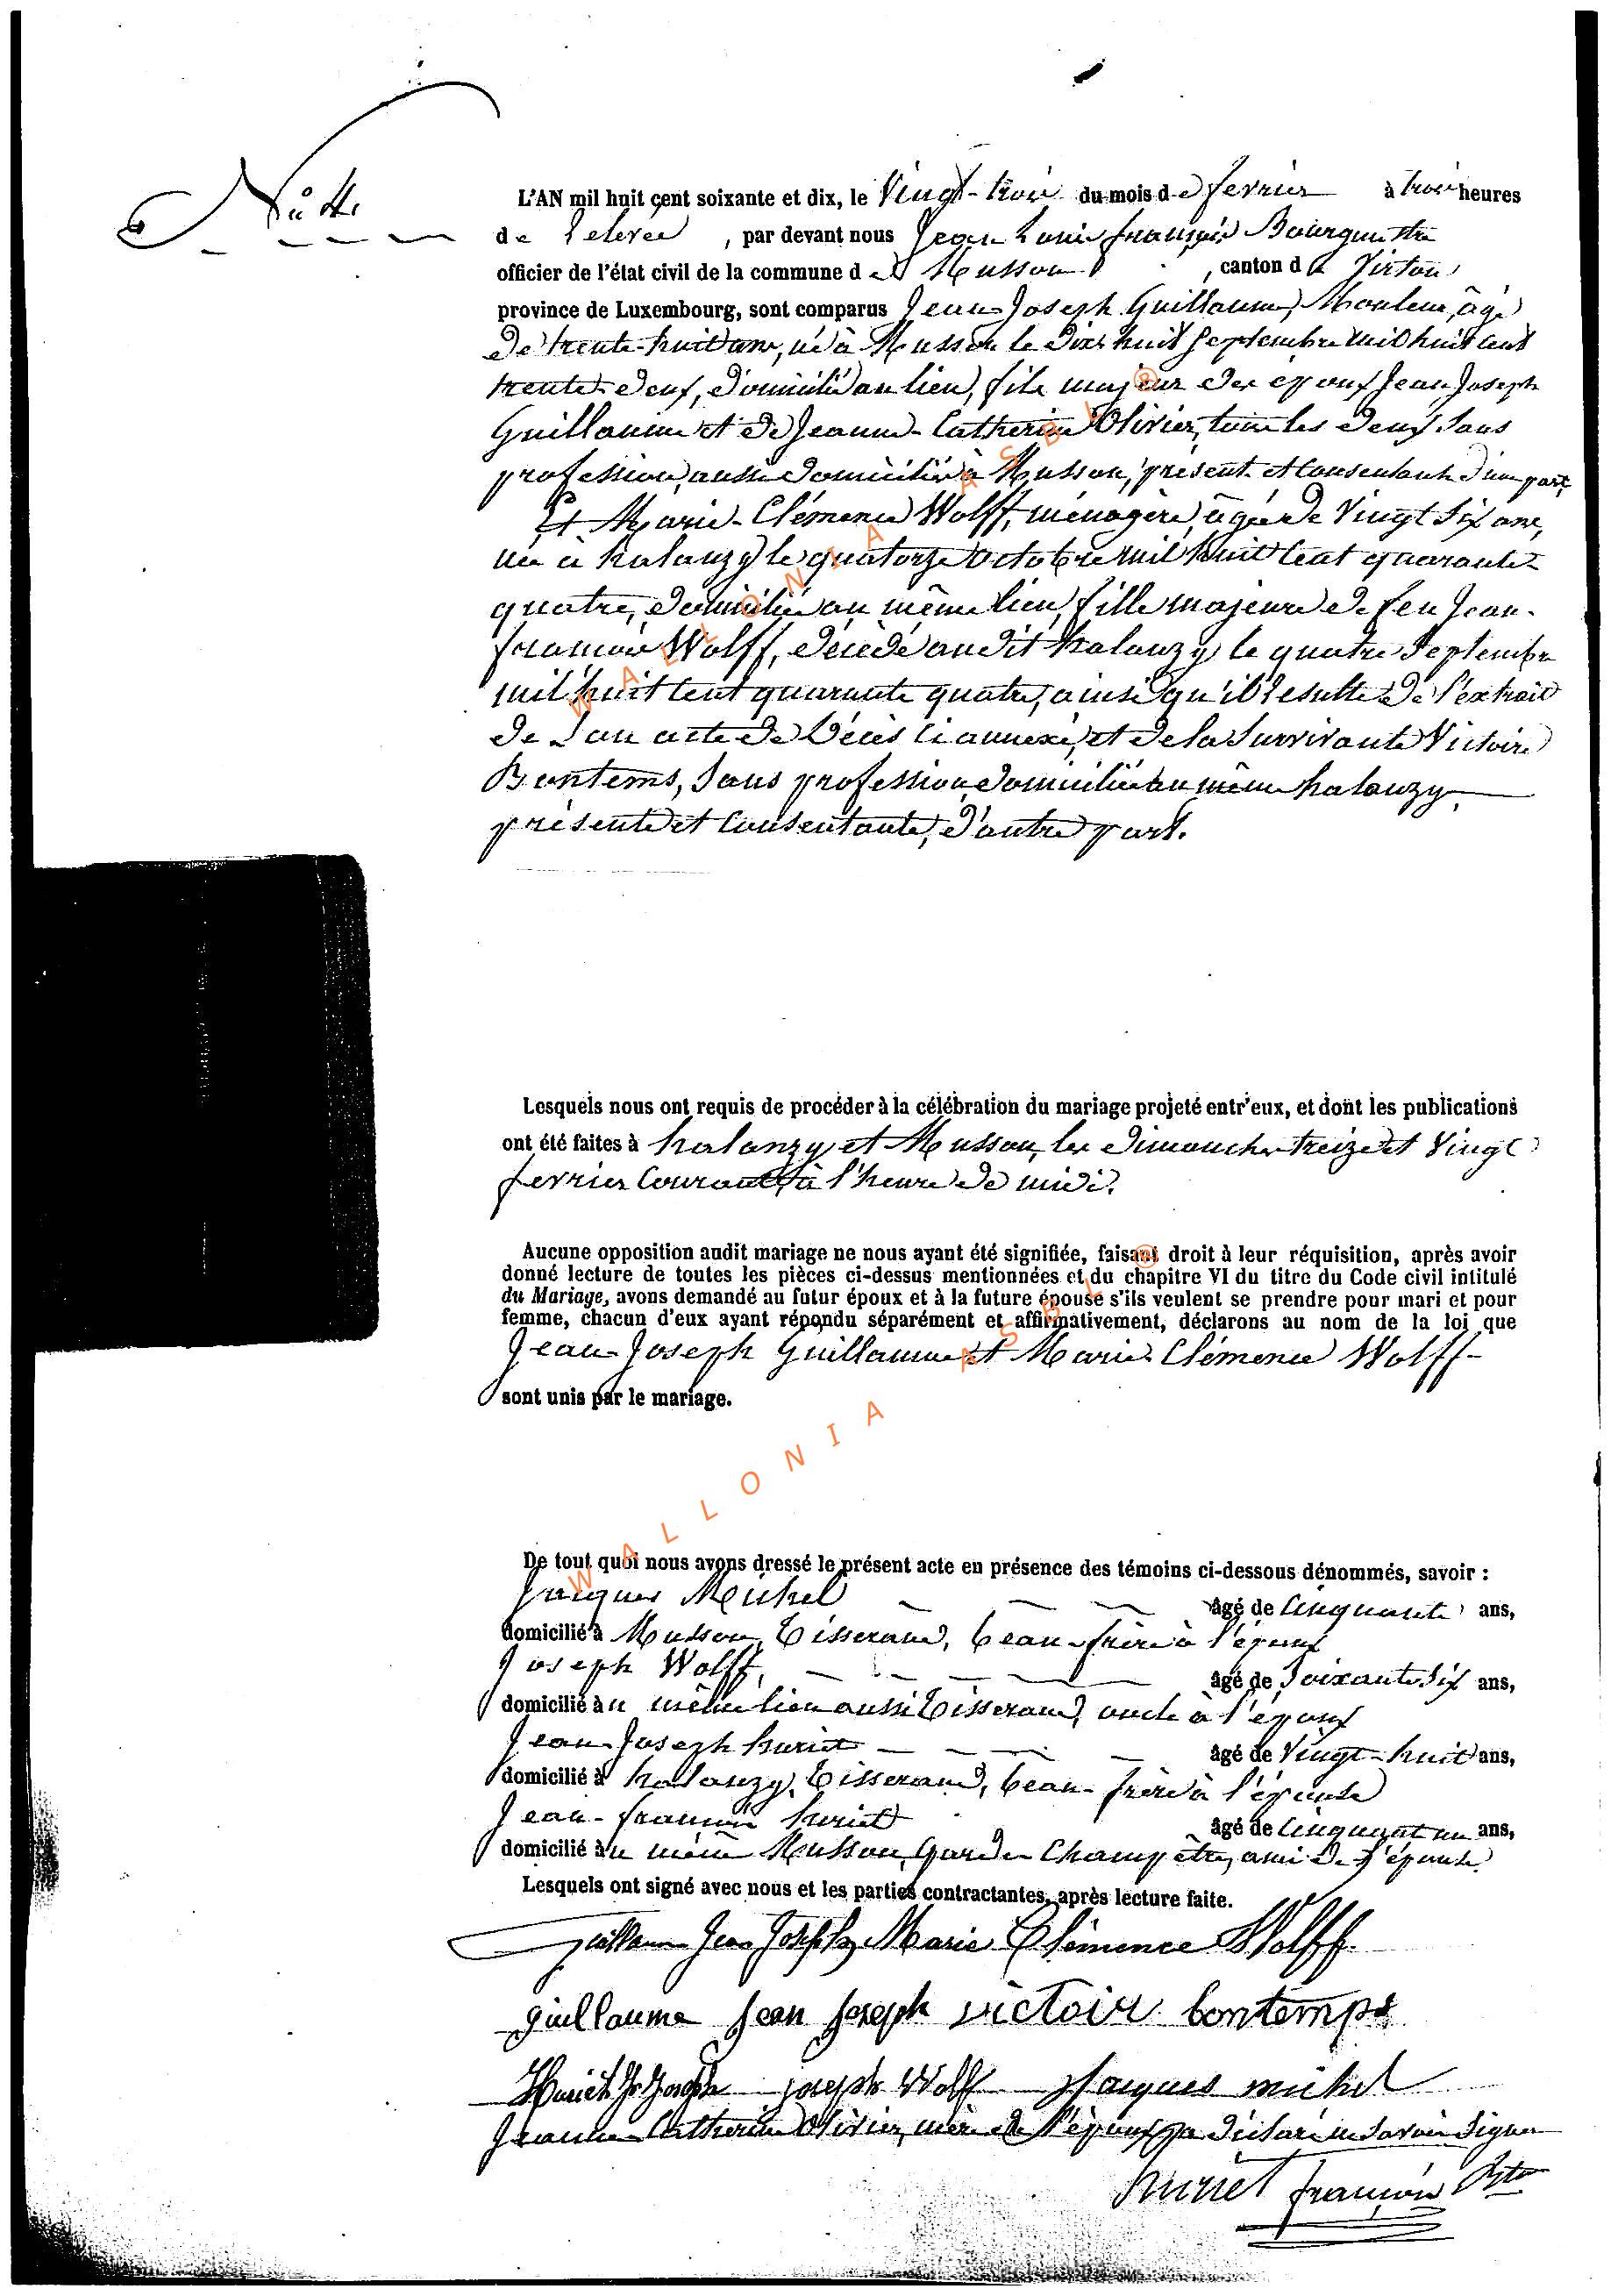 N.° 4.
L'AN mil huit cent soixante et dix, le Vingt-trois du mois de fevrier à trois heures
de relevée, par devant nous Jean Louis françois Bourgmestre
officier de l'état civil de la commune de Musson, canton de Virton
province de Luxembourg, sont comparus Jean-Joseph Guillaume, Mouleur, âgé
de trente-huit ans, né à Musson le dix huit Septembre mil huit cent
trente-deux, domicilié au lieu, fils majeur des époux Jean Joseph
Guillaume et de Jeanne-Catherine Olivier, tous les deux sans
profession, aussi domiciliés à Musson, présent et consentants d'une part,
Et Marie-Clémence Wolff, ménagère, âgée de Vingt Six ans,
née à halanzy le quatorze octobre mil huit cent quarante-
quatre, domiciliée au même lieu, fille majeure de feu Jean-
françois Wolff, décédé audit halanzy le quatre Septembre
mil huit cent quarante quatre, ainsi qu'il résulte de l'extrait
de son acte de décès ci annexé, et de la survivante Victoire
Bontems, sans profession, domiciliée au même halanzy,
présente et consentante, d'autre part.
Lesquels nous ont requis de procéder à la célébration du mariage projeté entr'eux, et dont les publications
ont été faites à halanzy et Musson, les dimanches treize et Vingt
fevrier courant, à l'heure de midi.
Aucune opposition audit mariage ne nous ayant été signifiée, faisant droit à leur réquisition, après avoir
donné lecture de toutes les pièces ci-dessus mentionnées et du chapitre VI du titre du Code civil intitulé
du Mariage, avons demandé au futur époux et à la future épouse s'ils veulent se prendre pour mari et pour
femme, chacun d'eux ayant répondu séparément et affirmativement, déclarons au nom de la loi que
Jean-Joseph Guillaume et Marie-Clémence Wolff-
sont unis par le mariage.
WALLONIA ASBL ®
De tout quoi nous avons dressé le présent acte en présence des témoins ci-dessous dénommés, savoir :
Jacques Michel âgé de Cinquante ans,
domicilié à Musson, Tisserand, beau-frère à l'époux
Joseph Wolff, âgé de Soixante Six ans,
domicilié au même lieu aussi Tisserand, oncle à l'époux
Jean-Joseph huriet âgé de Vingt-huit ans,
domicilié à halanzy, Tisserand, beau-frère à l'épouse
Jean-françois huriet âgé de Cinquante un ans,
domicilié au même Musson, Garde Champêtre, ami de l'épouse
Lesquels ont signé avec nous et les parties contractantes, après lecture faite.
Guillaume Jean Joseph Marie Clémence Wolff.
guillaume jean joseph victoir bontemps
Huriet Jn Joseph joseph Wolff Jacques michel
Jeanne-Catherine Olivier, mère de l'époux, a déclaré ne savoir signer
huriet françois Bstre